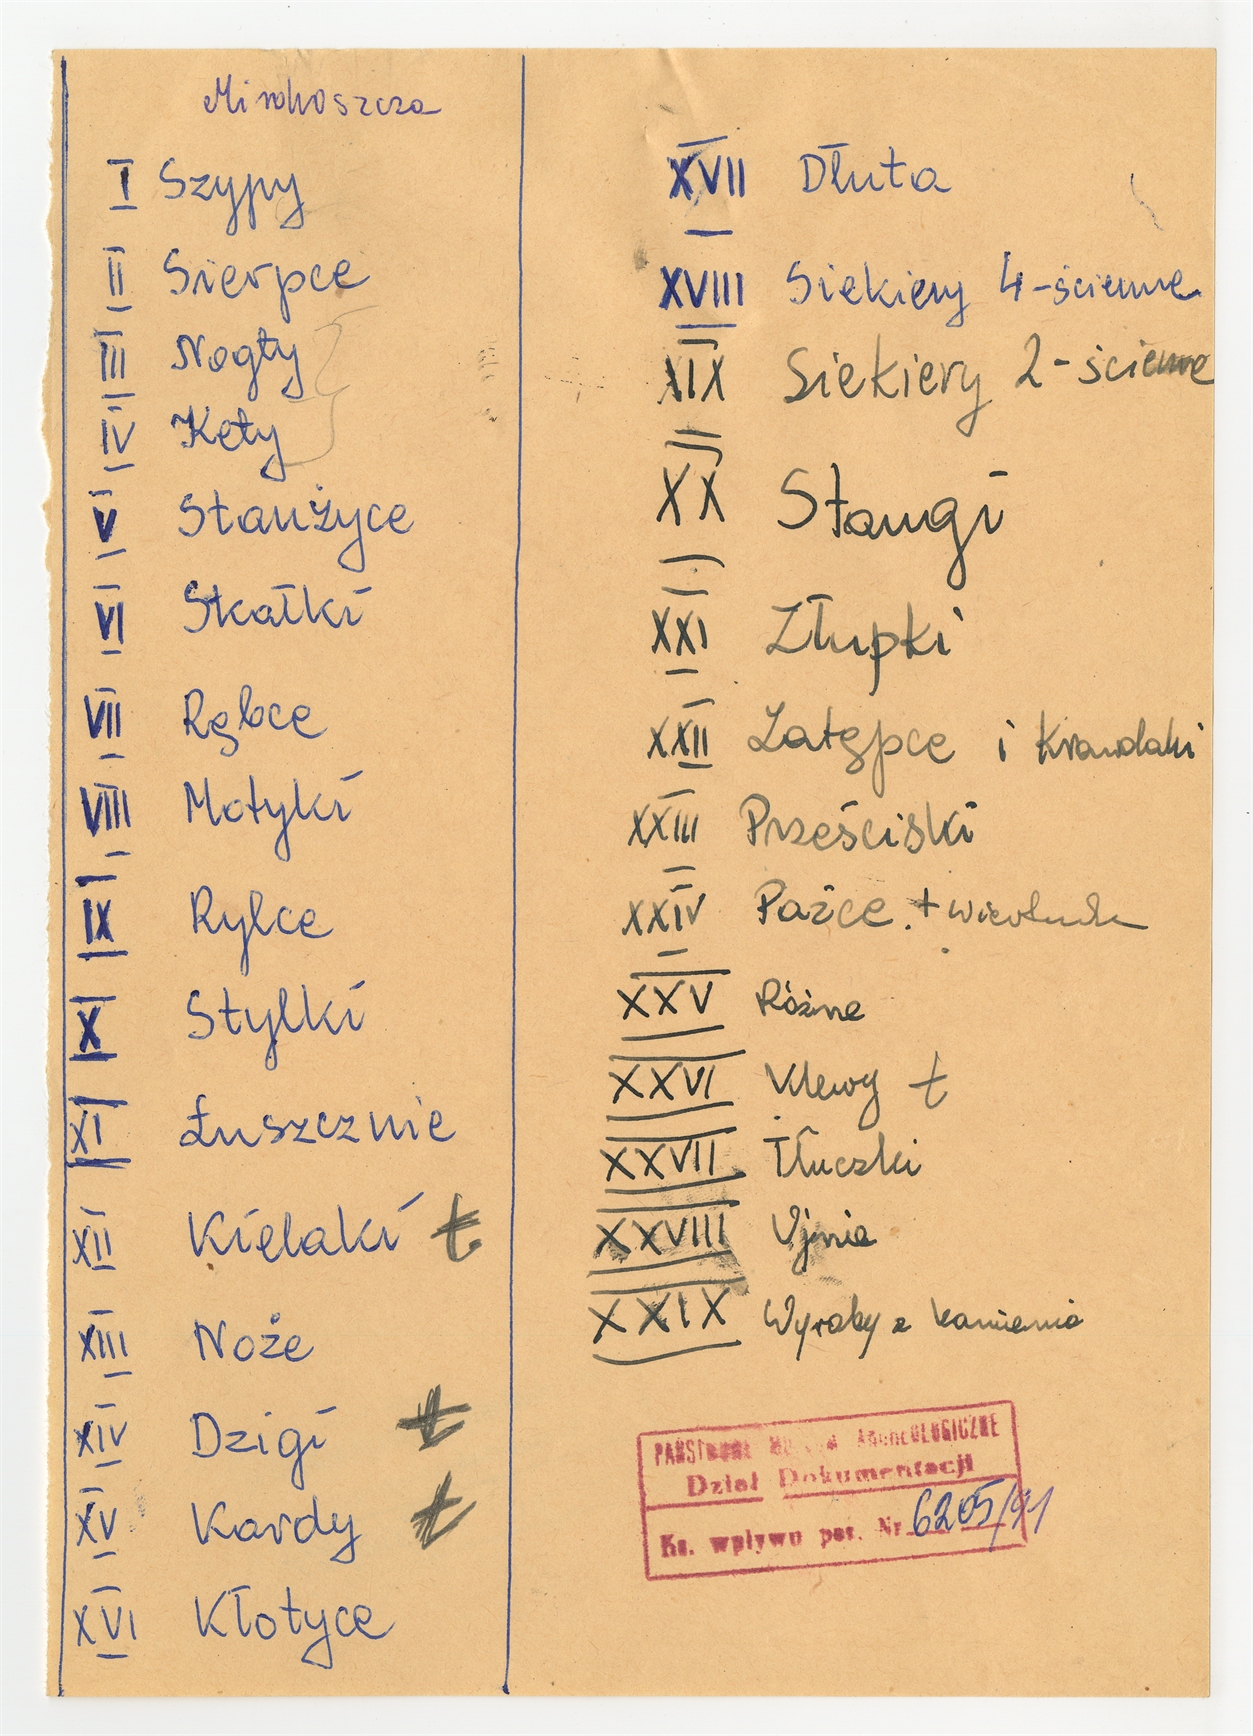 Mirohoszcza
I Szypy
II Sierpce
III Nogty
IV Kęty
V Stanżyce
VI Skałki
VII Rębce
VIII Motyki
IX Rylce
X Stylki
XI Łuszcznie
XII Kielaki t
XIII Noże
XIV Dzigi t
XV Kardy t
XVI Kłotyce
XVII Dłuta
XVIII Siekiery 4-ścienne
XIX Siekiery 2-ścienne
XX Stangi
XXI Złupki
XXII Zatępce i Krawdaki
XXIII Prześciski
XXIV Paźce +
XXV Różne
XXVI Klewy t
XXVII Tłuczki
XXVIII Ujnie
XXIX Wyroby z kamienia
PAŃSTWOWE MUZEUM ARCHEOLOGICZNE
Dział Dokumentacji
Ks. wpływu poz. Nr 6205/91